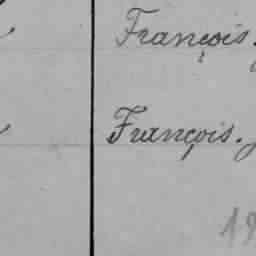 François.
François.
19